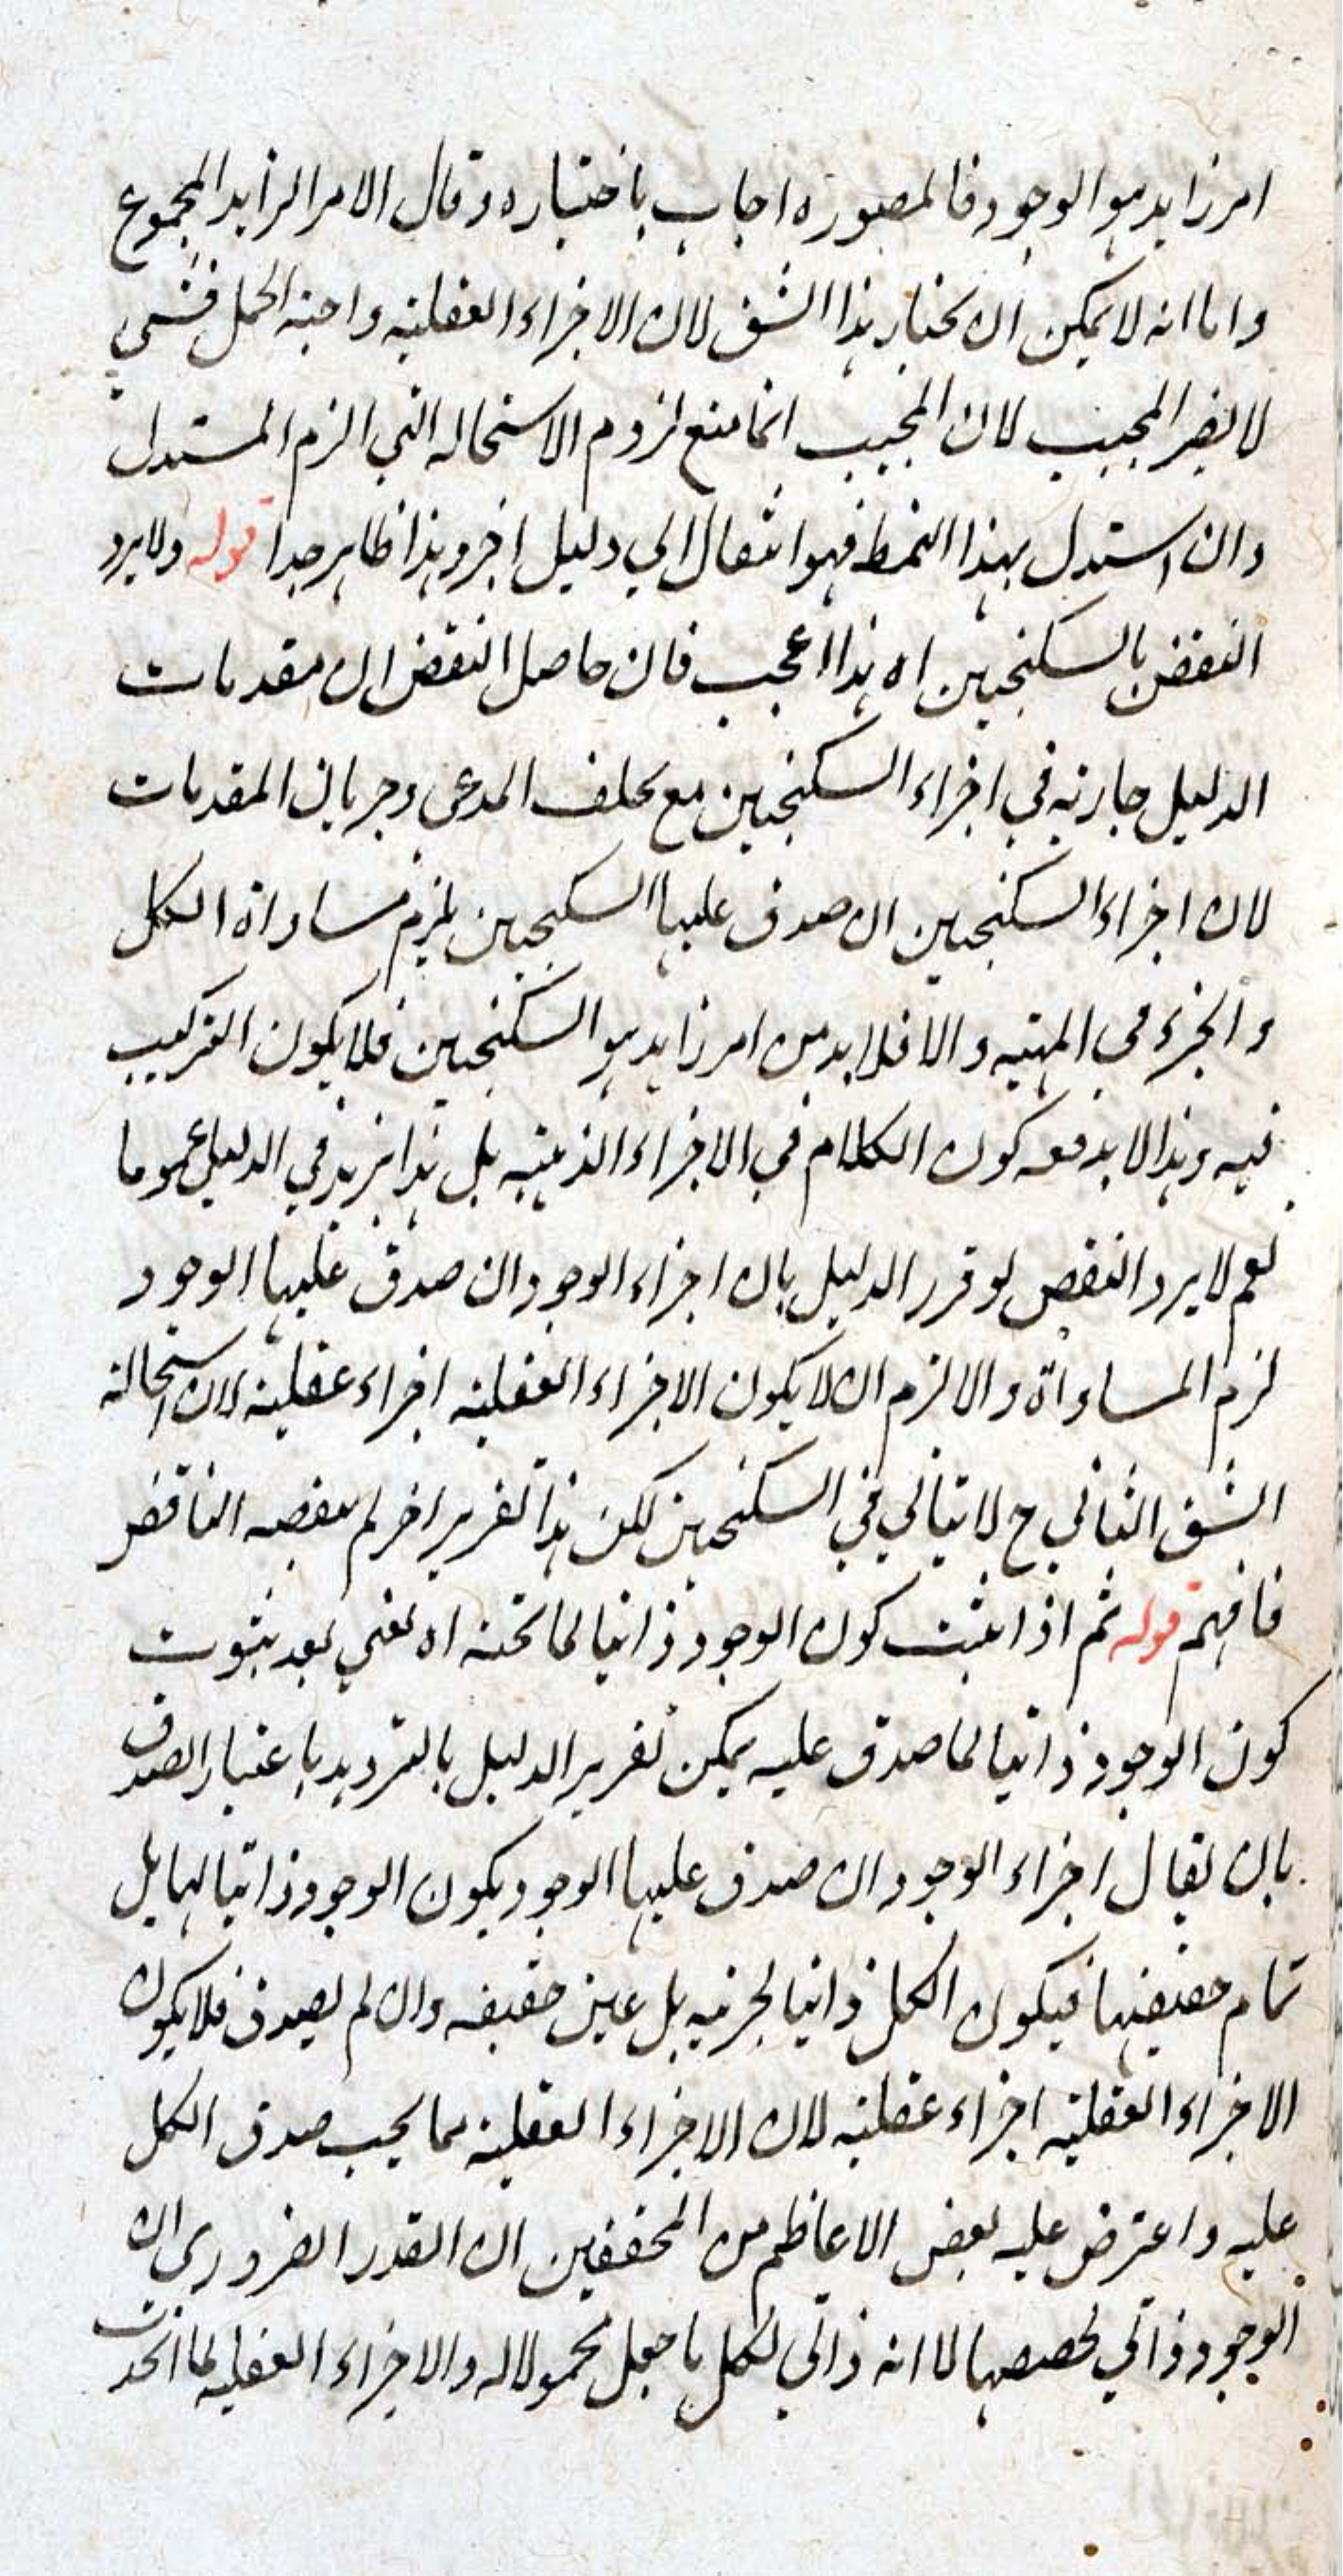 امر زايد هو الوجود فالمصوره اجاب باختياره وقال الامر الزايد المجموع
واما انه لا يمكن ان يختار هذا الشق لان الاجزاء العقلية واجبة الحمل فشي
لا يضر المجيب لان المجيب انما منع لزوم الاستحاله التي الزم المستدل
وان استدل بهذا النمط فهو انتقال الي دليل اخر وهذا ظاهر جدا قوله ولا يرد
النقض بالسكنجبين اه هذا اعجب فان حاصل النقض ان مقدمات
الدليل جارية في اجزاء السكنجبين مع تخلف المدعى وجريان المقدمات
لان اجزاء السكنجبين ان صدق عليها السكنجبين يلزم مساواة الكل
والجزء في المهية والا فلا بد من امر زايد هو السكنجبين فلا يكون التركيب
فيه وهذا لا يدفعه كون الكلام في الاجزاء الذهنية بل هذا يزيد في الدليل عموما
نعم لا يرد النقض لو قرر الدليل بان اجزاء الوجود ان صدق عليها الوجود
لزم المساواة والا لزم ان لا يكون الاجزاء العقلية اجزاء عقلية لان استحالة
الشق الثاني ح لا يتاتي في السكنجبين لكن هذا تقرير اخر لم ينقضه الناقض
فافهم قوله ثم اذا ثبت كون الوجود ذاتيا لما تحته اه يعني بعد ثبوت
كون الوجود ذاتيا لما صدق عليه يمكن تقرير الدليل بالترديد باعتبار الصدق
بان يقال اجزاء الوجود ان صدق عليها الوجود يكون الوجود ذاتيا لها بل
تمام حقيقتها فيكون الكل ذاتيا لجزئيه بل عين حقيقه وان لم يصدق فلا يكون
الاجزاء العقلية اجزاء عقلية لان الاجزاء العقلية مما يجب صدق الكل
عليه واعترض عليه بعض الاعاظم من المحققين ان القدر الضروري ان
الوجود ذاتي لحصصها لا انه ذاتي لكل ما جعل محمولا له والاجزاء العقليه لما اتحدت